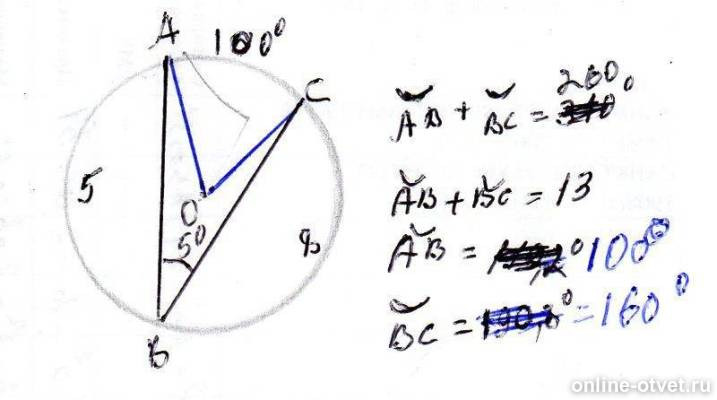 A
100°
C
5
O
50
8
B
260°
AB + BC =
AB + BC = 13
AB = 100°
BC = = 160°
online-otvet.ru